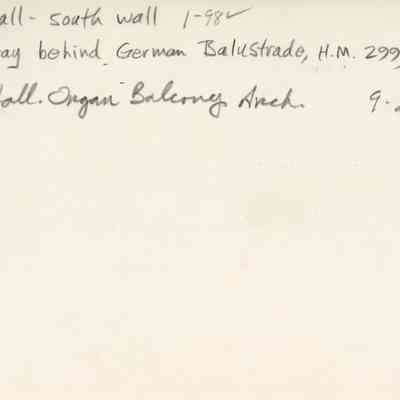 all - south wall 1-98✓
ay behind German Balustrade, H.M. 299
Hall. Organ Balcony Arch. 9-